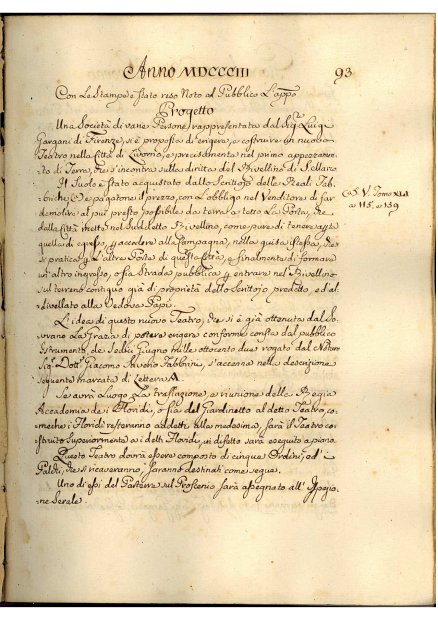 Anno MDCCCIII
93
Con Le Stampe è stato reso Noto al Pubblico L'appo
Progetto
Una Società di varie Persone, rappresentata dal Sig.r Luigi
Gargani di Firenze, si è proposta di erigere, e costruire un nuovo
Teatro nella Città di Livorno, e precisamente nel primo appezzamen
to di Terra, che s'incontra sulla diritta del Rivellino di S. Marco
Il Suolo è stato acquistato dallo Scrittojo delle Reali Fab-
briche, e pagatone il prezzo, con L'obbligo nel Venditore di far
demolire al più presto possibile da terra a tetto La Porta, che
dalla Città mette nel suddetto Rivellino, come pure di tenere aperta
quella di egresso, p accedere alla Campagna, nella guisa istessa, che
si pratica p L'altre Porte di questa Città, e finalmente di formare
un'altro ingresso, o sia Strada pubblica p entrare nel Rivellino
sul terreno contiguo già di proprietà dello Scrittojo predetto, ed al
Livellato alla Vedova Papi.
Cas. V. Tomo XLI
a 115, a 139
L'idea di questo nuovo Teatro, che si è già ottenuta dal So-
vrano La Grazia di potere erigere conforme consta dal pubblico
Istrumento de' Sedici Giugno mille ottocento due rogato dal Notaro
Sig.r Dott.r Giacomo Aloisio Fabbrini, s'accenna nella descrizione
seguente marcata di Lettera A.
Se avrà Luogo La traslazione, o riunione della Regia
Accademia de i Floridi, o sia del Giardinetto al detto Teatro, co-
mechè i Floridi resteranno addetti alla medesima, sarà il Teatro co-
struito Superiormente a i detti Floridi, in difetto varà eseguito a piano.
Questo Teatro dovrà essere composto di cinque Ordini, ed i
Palchi, che si ricaveranno, saranno destinati come segue.
Uno di essi del Parterre sul Proscenio sarà assegnato all' Ispezio-
ne Serale.